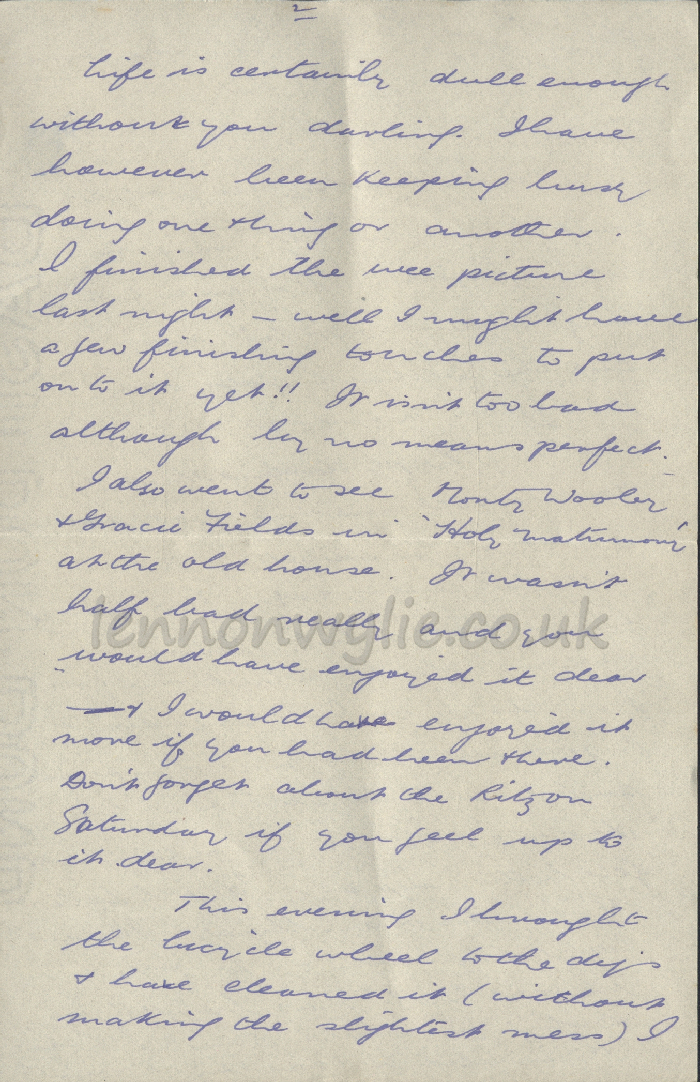 2
Life is certainly dull enough
without you darling. I have
however been keeping busy
doing one thing or another.
I finished the wee picture
last night — well I might have
a few finishing touches to put
on to it yet!! It isn't too bad
although by no means perfect.
I also went to see Monty Wooley
& Gracie Fields in "Holy matrimony"
at the old house. It wasn't
half bad really and you
lennonwylie.co.uk
would have enjoyed it dear
— & I would have enjoyed it
more if you had been there.
Don't forget about the Ritz on
Saturday if you feel up to
it dear.
This evening I brought
the bicycle wheel to the digs
& have cleaned it (without
making the slightest mess) I